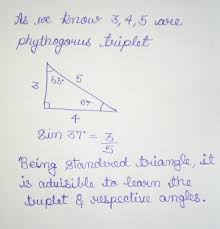 As we know 3, 4, 5 are
phythogorus triplet
3
53°
5
37°
4
Sin 37° = 3/5
Being standered triangle, it
is advisible to learn the
triplet & respective angles.